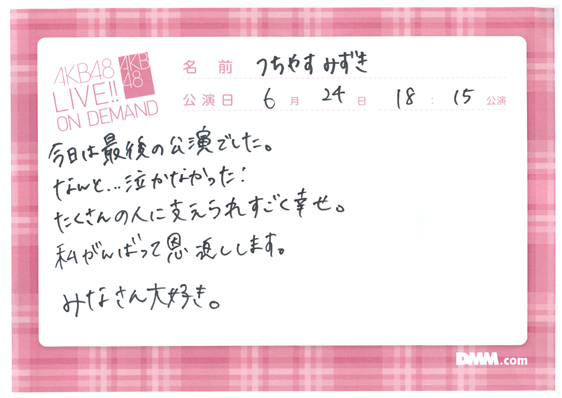 AKB48
LIVE!!
ON DEMAND
AKB
48
名前 つちやす みずき
公演日 6月 24日 18:15 公演
今日は最後の公演でした。
なんと…泣かなかった!
たくさんの人に支えられすごく幸せ。
私がんばって恩返しします。
みなさん大好き。
DMM.com